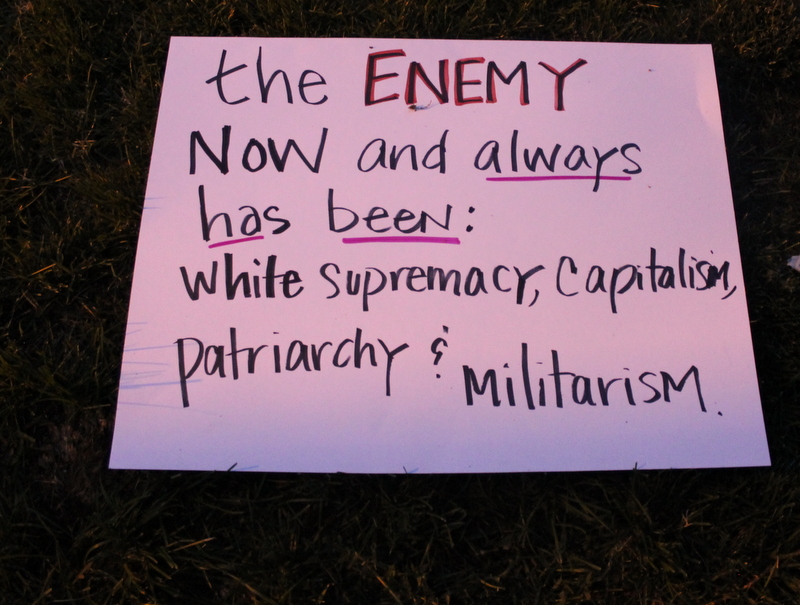 the ENEMY
NOW and always
has been:
White Supremacy, Capitalism,
Patriarchy & Militarism.